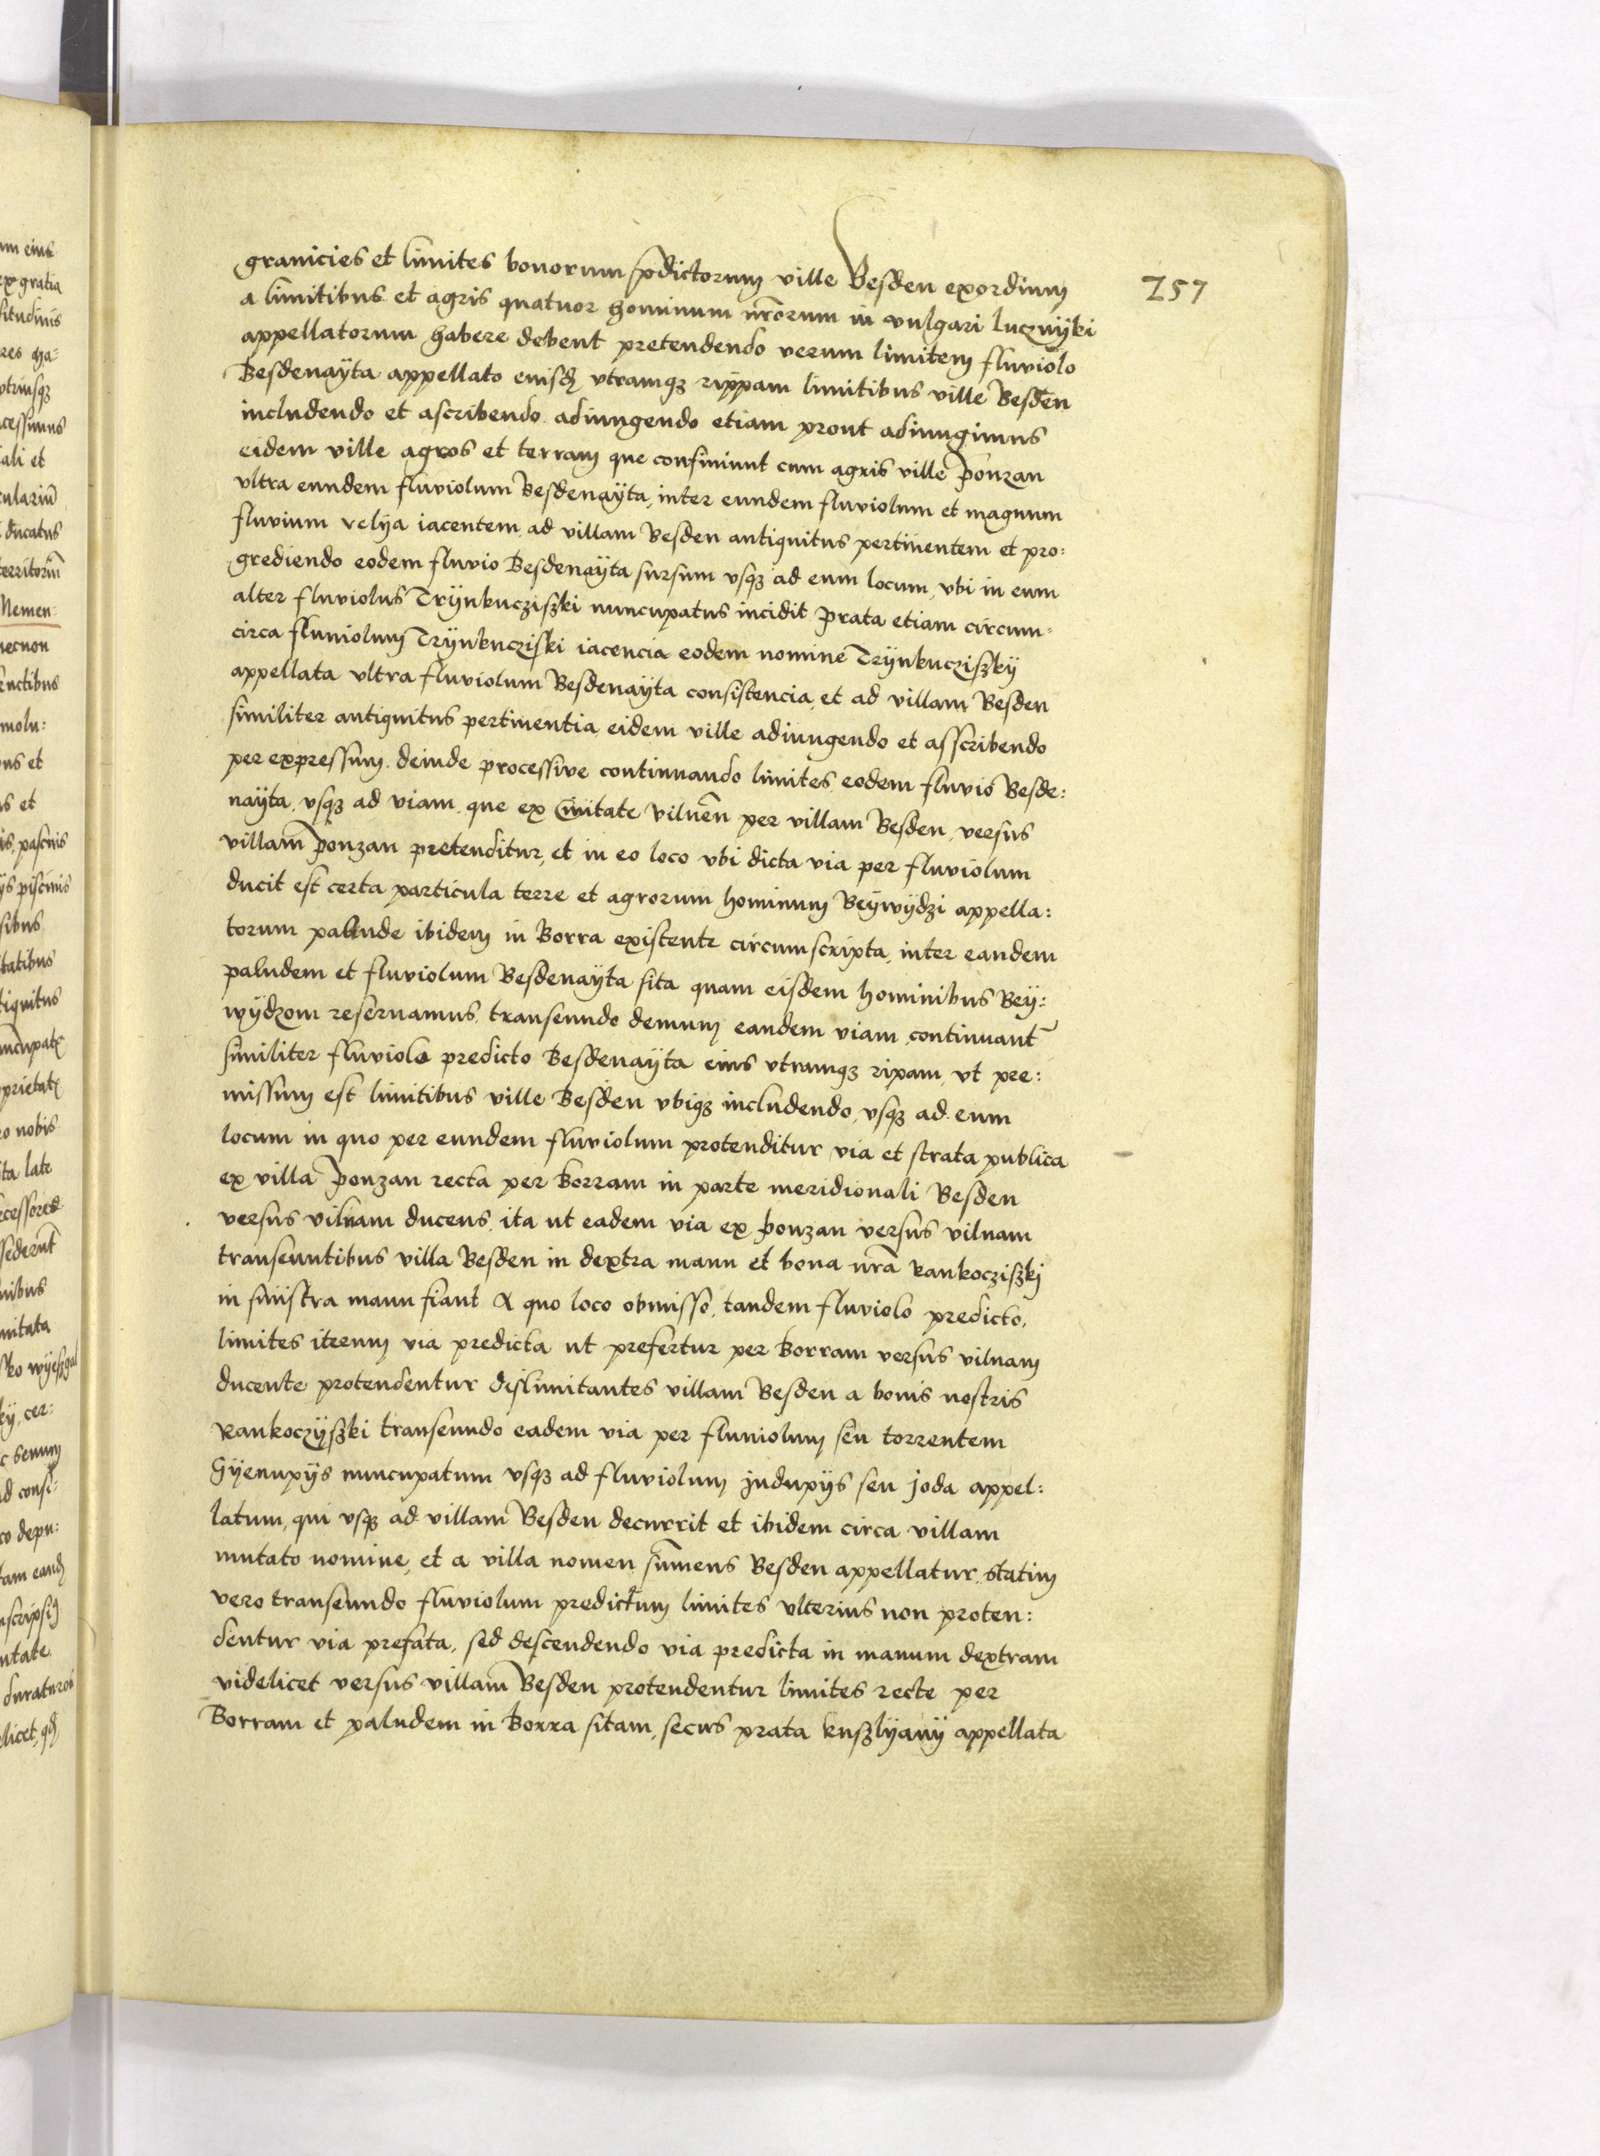 257
granicies et limites bonorum p̄dictorum ville Besden exordium
a limitibus et agris quatuor hominum nr̄orum in vulgari luczniÿki
appellatorum habere debent pretendendo verum limitem fluviolo
Besdenaÿta appellato eiusdem vtramqꝫ rippam limitibus ville Besden
includendo et ascribendo adiungendo etiam prout adiungimus
eidem ville agros et terram que confiniunt cum agris ville Ponzan
vltra eundem fluviolum Besdenaÿta, inter eundem fluviolum et magnum
fluvium velya iacentem, ad villam Besden antiquitus pertinentem et pro:
grediendo eodem fluvio Besdenaÿta sursum vsqꝫ ad eum locum, vbi in eum
alter fluviolus Trÿnkucziszki nuncupatus incidit prata etiam circum:
circa fluuiolum Trÿnkucziski iacencia eodem nomine Trÿnkucziszkÿ
appellata vltra fluviolum Besdenaÿta consistencia, et ad villam Besden
similiter antiquitus pertinentia eidem ville adiungendo et asscribendo
per expressum. deinde processive continuando limites eodem fluvio Besde:
naÿta, vsqꝫ ad viam que ex Ciuitate vilnen̄ per villam Besden, versus
villam Ponzan pretenditur, et in eo loco vbi dicta via per fluviolum
ducit est certa particula terre et agrorum hominum Beÿwÿdzi appella:
torum palude ibidem in Borra existente circumscripta, inter eandem
paludem et fluviolum Besdenaÿta sita quam eisdem hominibus Beÿ:
wÿdzom reseruamus, transeundo demum eandem viam, continuant̄
similiter fluviolo predicto Besdenaÿta eius vtramqꝫ ripam, vt pre:
missum est limitibus ville Besden vbiqꝫ includendo, vsqꝫ ad eum
locum in quo per eundem fluviolum protenditur via et strata publica
ex villa Ponzan recta per borram in parte meridionali Besden
versus vilnam ducens, ita ut eadem via ex ponzan versus vilnam
transeuntibus villa Besden in dextra manu et bona nr̄a Rankocziszkj
in sinistra manu fiant A quo loco obmisso, tandem fluviolo predicto,
limites iterum via predicta ut prefertur per borram versus vilnam
ducente protendentur dislimitantes villam Besden a bonis nostris
Rankoczÿszki transeundo eadem via per fluuiolum seu torrentem
Gÿenupÿs nuncupatum vsqꝫ ad fluviolum Judupÿs seu joda appel:
latum, qui vsqꝫ ad villam Besden decurrit et ibidem circa villam
mutato nomine, et a villa nomen sumens Besden appellatur, statim
vero transeundo fluviolum predictum limites vlterius non proten:
dentur via prefata, sed descendendo via predicta in manum dextram
videlicet versus villam Besden protendentur limites recte per
Borram et paludem in borra sitam, secus prata kuszlÿanÿ appellata